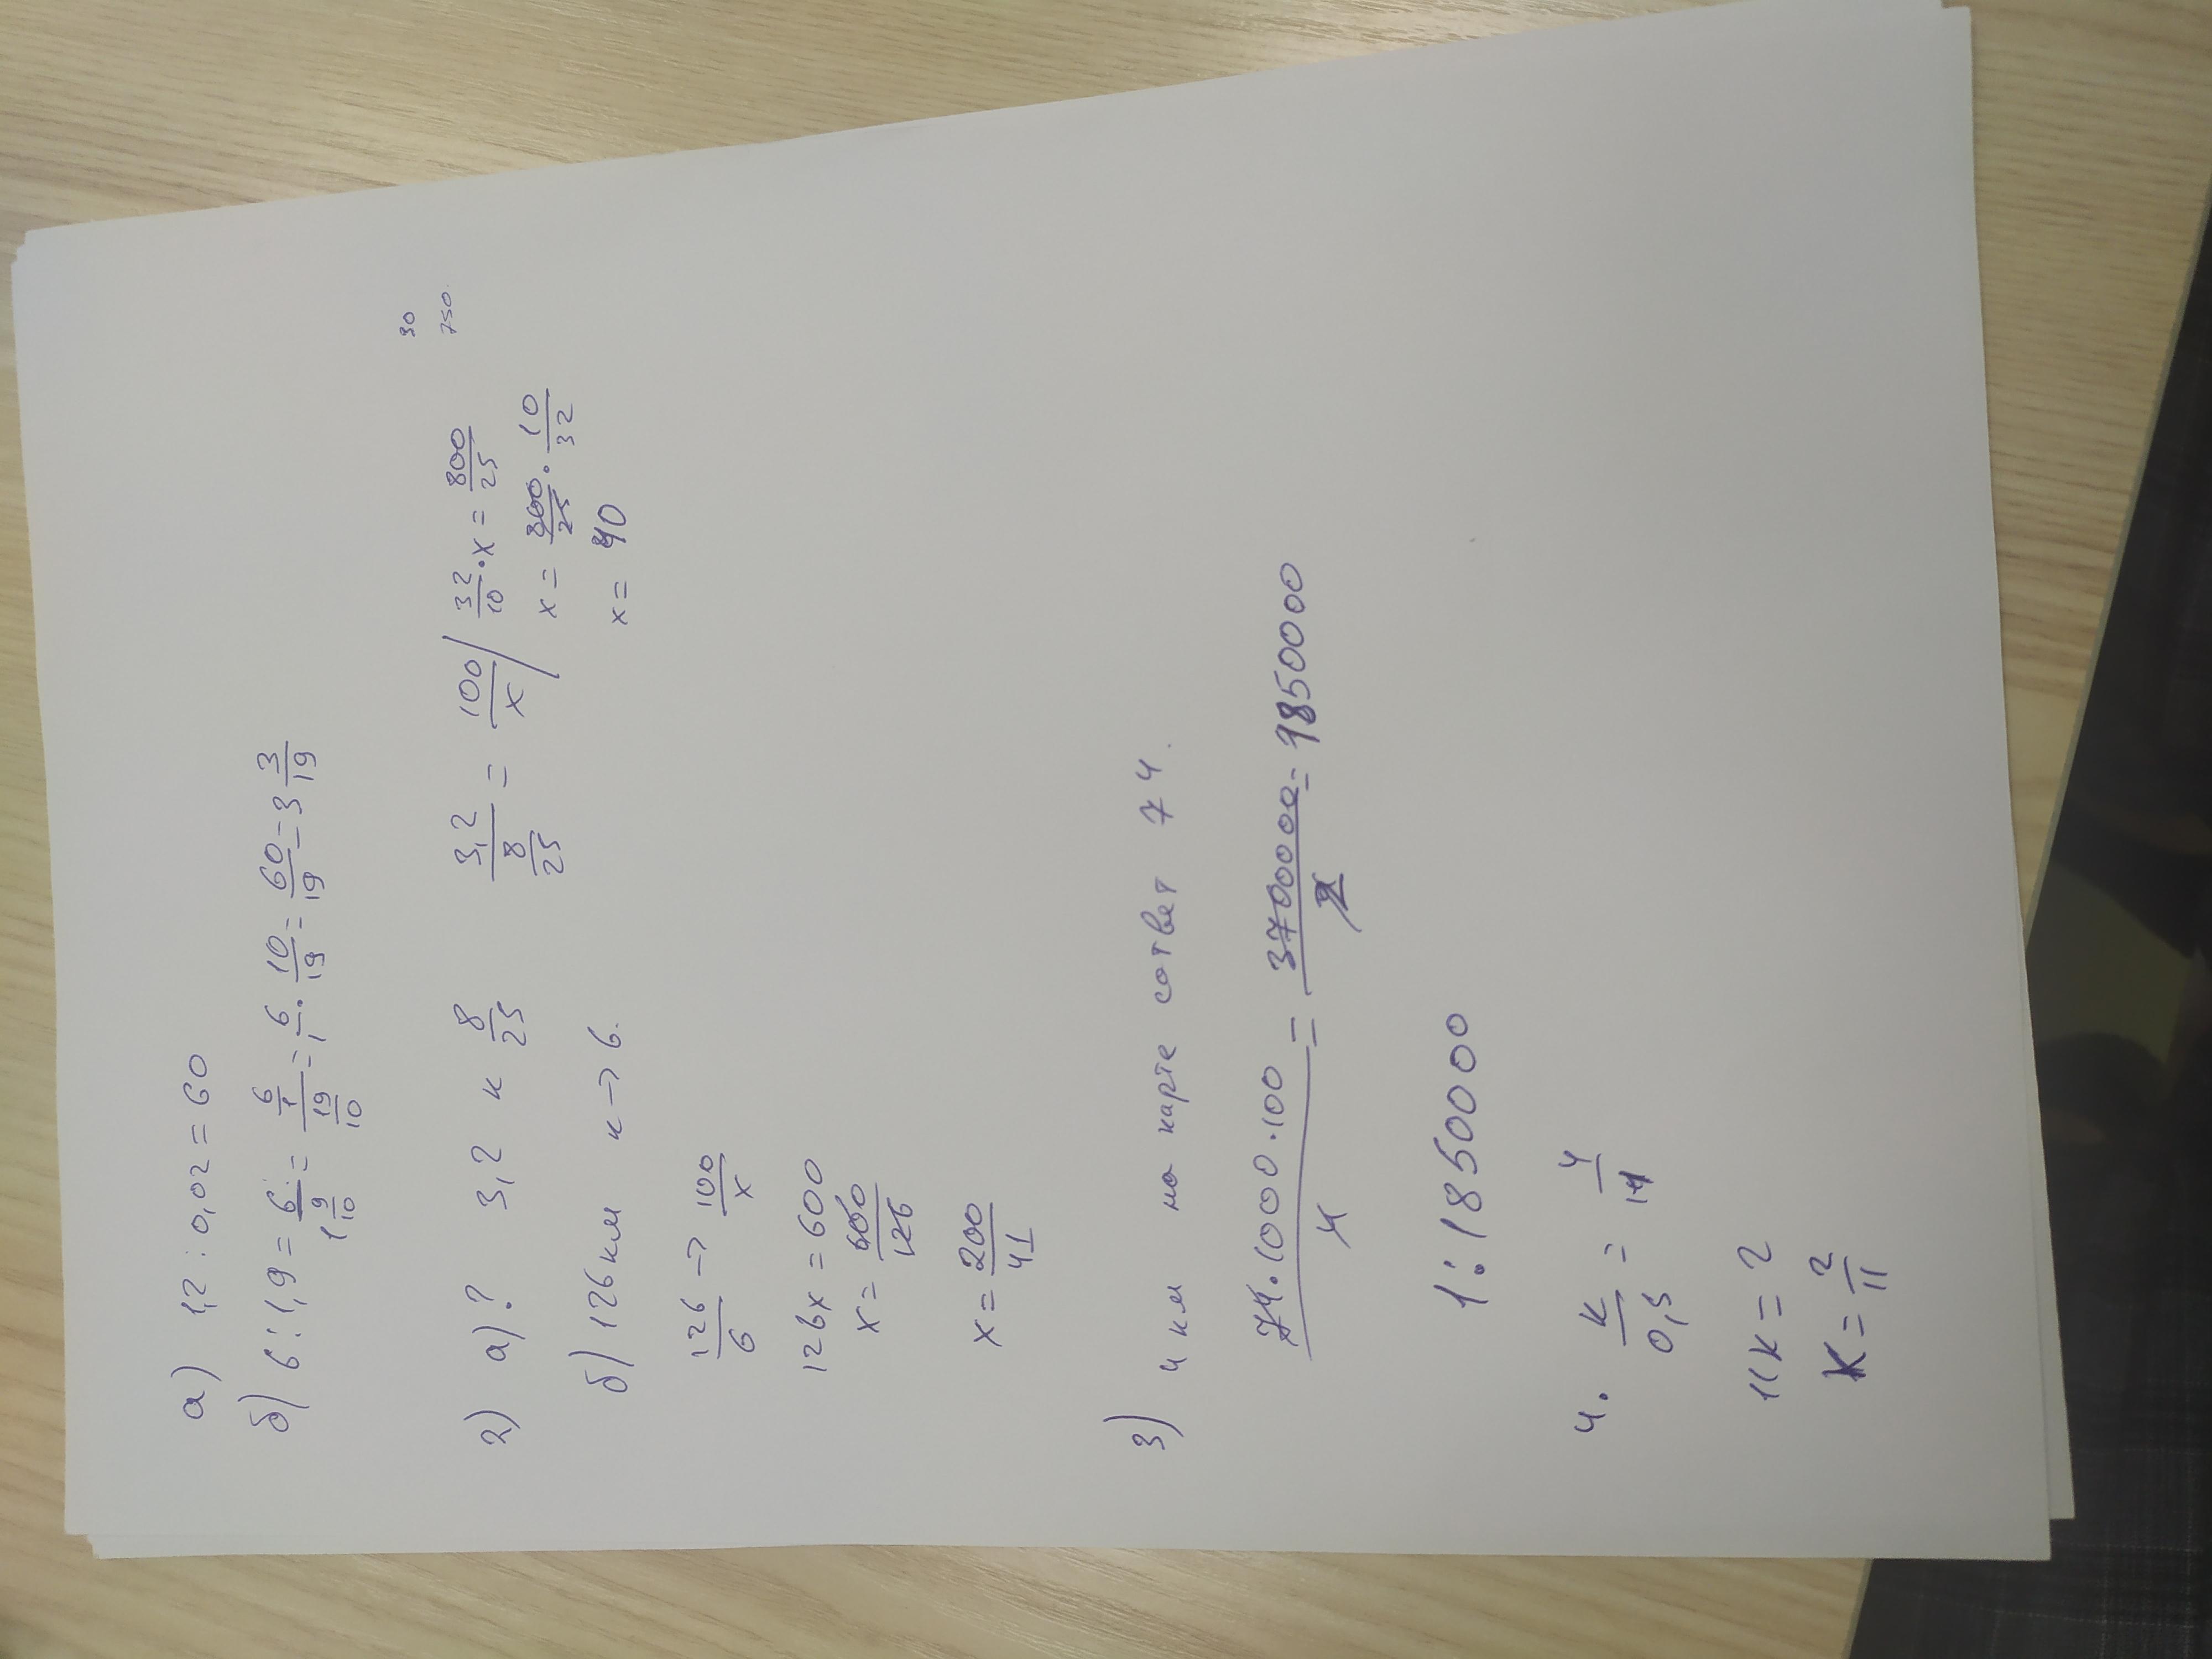 а) 1,2 : 0,02 = 60
б) 6 : 1,9 = 6/(1 9/10) = (6/1)/(19/10) = 6/1 · 10/19 = 60/19 = 3 3/19
30
750.
2) а) ? 3,2 к 8/25 3,2/(8/25) = 100/x | 32/10 · x = 800/25
x = 800/25 · 10/32
x = 40
б) 126 км к → 6.
126/6 → 100/x
126x = 600
x = 600/126
x = 200/41
3) 4 км на карте соствет 74.
74·1000·100/4 = 3700000/2 = 1850000
1 : 1850000
4. к/0,5 = 4/11
11к = 2
к = 2/11